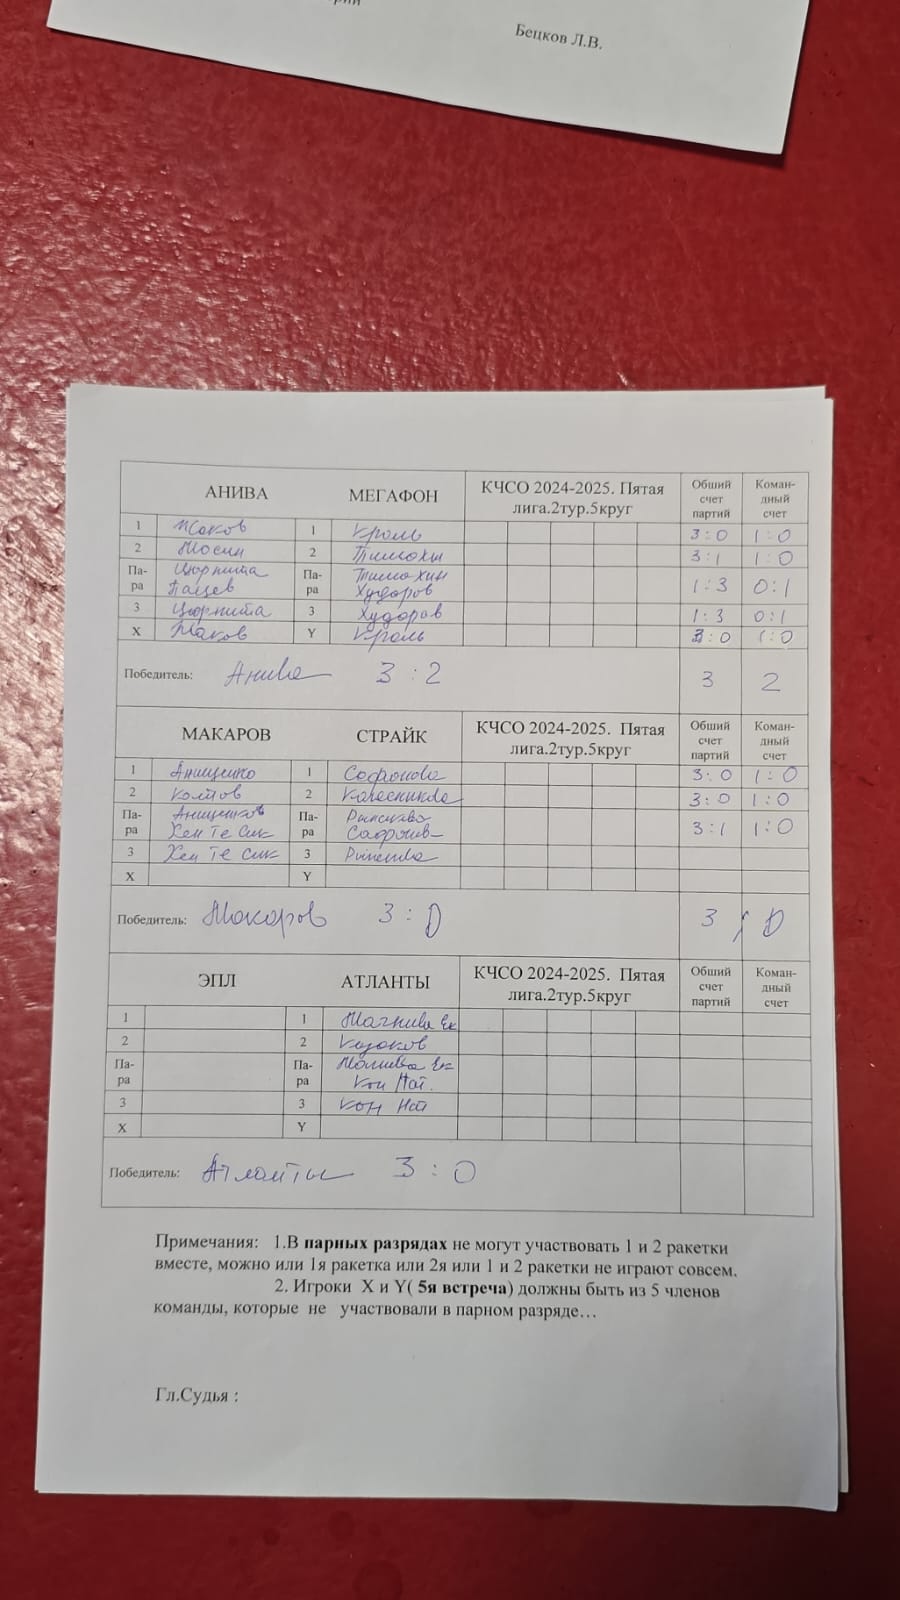 Бецков Л.В.
АНИВА МЕГАФОН КЧСО 2024-2025. Пятая лига.2тур.5круг Общий счет партий Коман-дный счет
1 Жаков 1 Кроль 3:0 1:0
2 Мосин 2 3:1 1:0
Па-ра Цюрпита Пацев Па-ра Тимохин Худоров 1:3 0:1
3 Цюрпита 3 Худоров 1:3 0:1
X Жаков Y Кроль 3:0 1:0
Победитель: Анива 3:2 3 2
МАКАРОВ СТРАЙК КЧСО 2024-2025. Пятая лига.2тур.5круг Общий счет партий Коман-дный счет
1 Анищенко 1 Софронова 3:0 1:0
2 Колтов 2 3:0 1:0
Па-ра Хен Те Сик Па-ра 3:1 1:0
3 Хен Те Сик 3
X Y
Победитель: Макаров 3:0 3 0
ЭПЛ АТЛАНТЫ КЧСО 2024-2025. Пятая лига.2тур.5круг Общий счет партий Коман-дный счет
1 1 Ек
2 2 Казаков
Па-ра Па-ра Ек Кон Нат.
3 3 Кон Нат
X Y
Победитель: Атланты 3:0
Примечания: 1.В парных разрядах не могут участвовать 1 и 2 ракетки
вместе, можно или 1я ракетка или 2я или 1 и 2 ракетки не играют совсем.
2. Игроки X и Y( 5я встреча) должны быть из 5 членов
команды, которые не участвовали в парном разряде…
Гл.Судья :